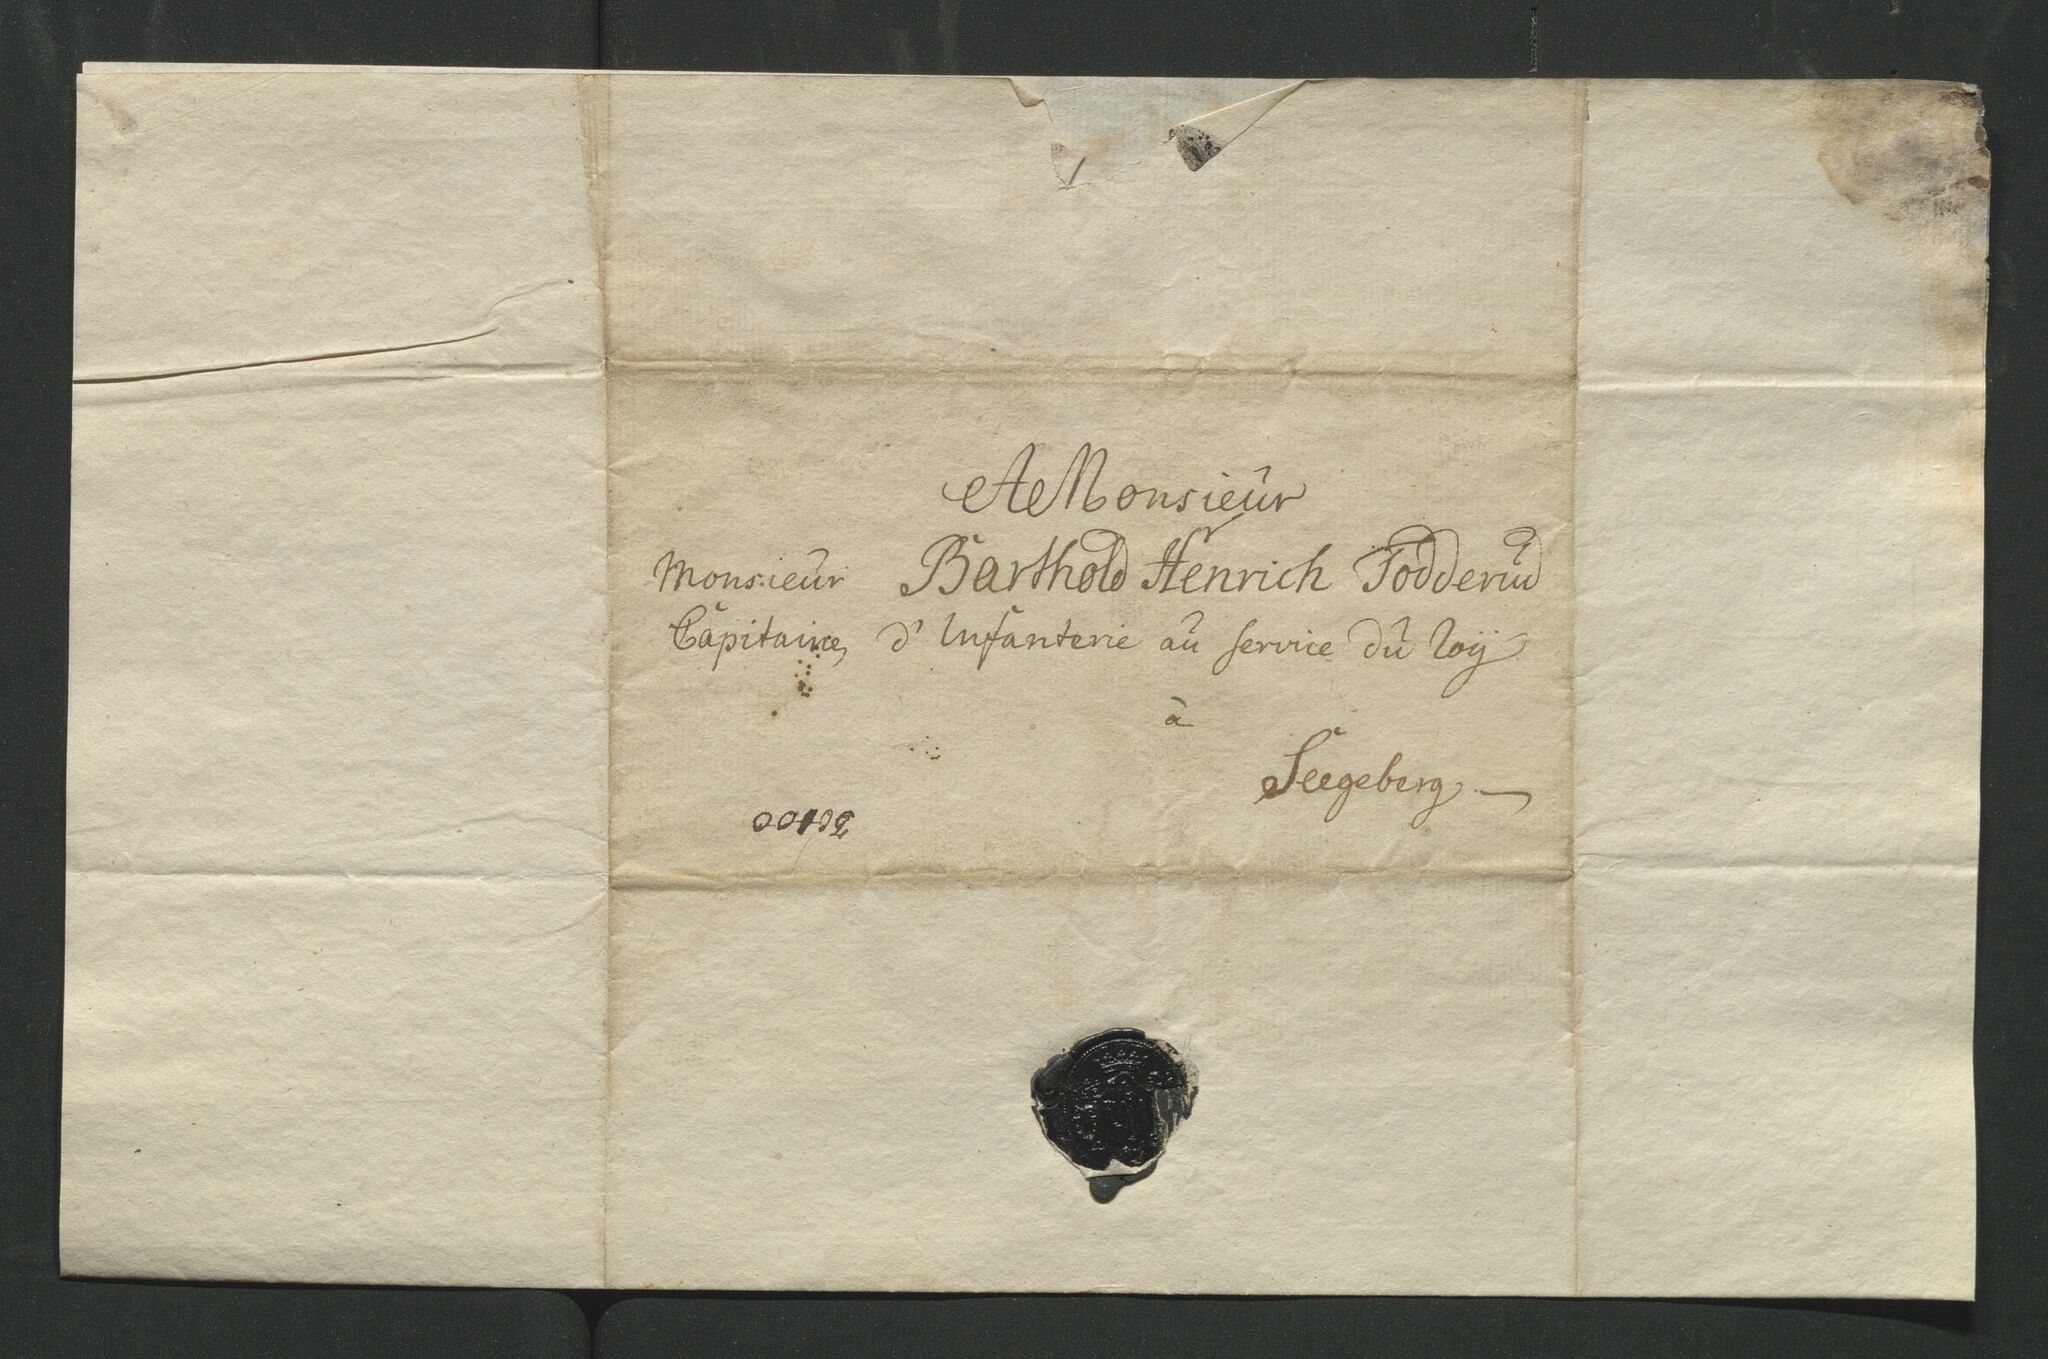 A Monsieur
Monsieur Barthold Henrich Todderud
Capitaine, d'Infanterie au service du Roÿ
à
Seegeberg.